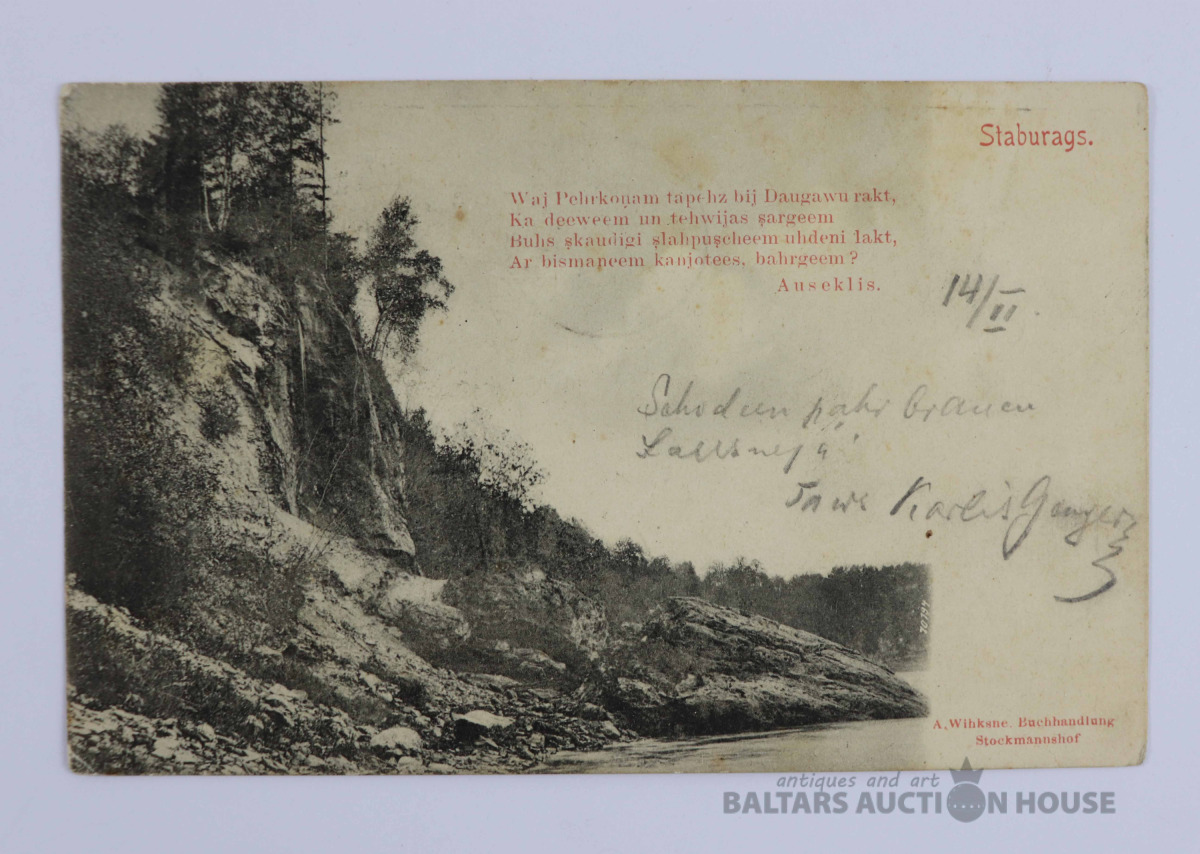 Staburags.
Waj Pehrkoņam tapehz bij Daugawu rakt,
Ka deeweem un tehwijas şargeem
Buhs şkaudigi şlahpuşcheem uhdeni lakt,
Ar bismaņeem kaŗjotees, bahrgeem?
Auseklis.
14/II.
Schodeen pahr brauen
Taws Karlis
70794
A. Wihksne. Buchhandlung
Stockmannshof
antiques and art
BALTARS AUCTION HOUSE